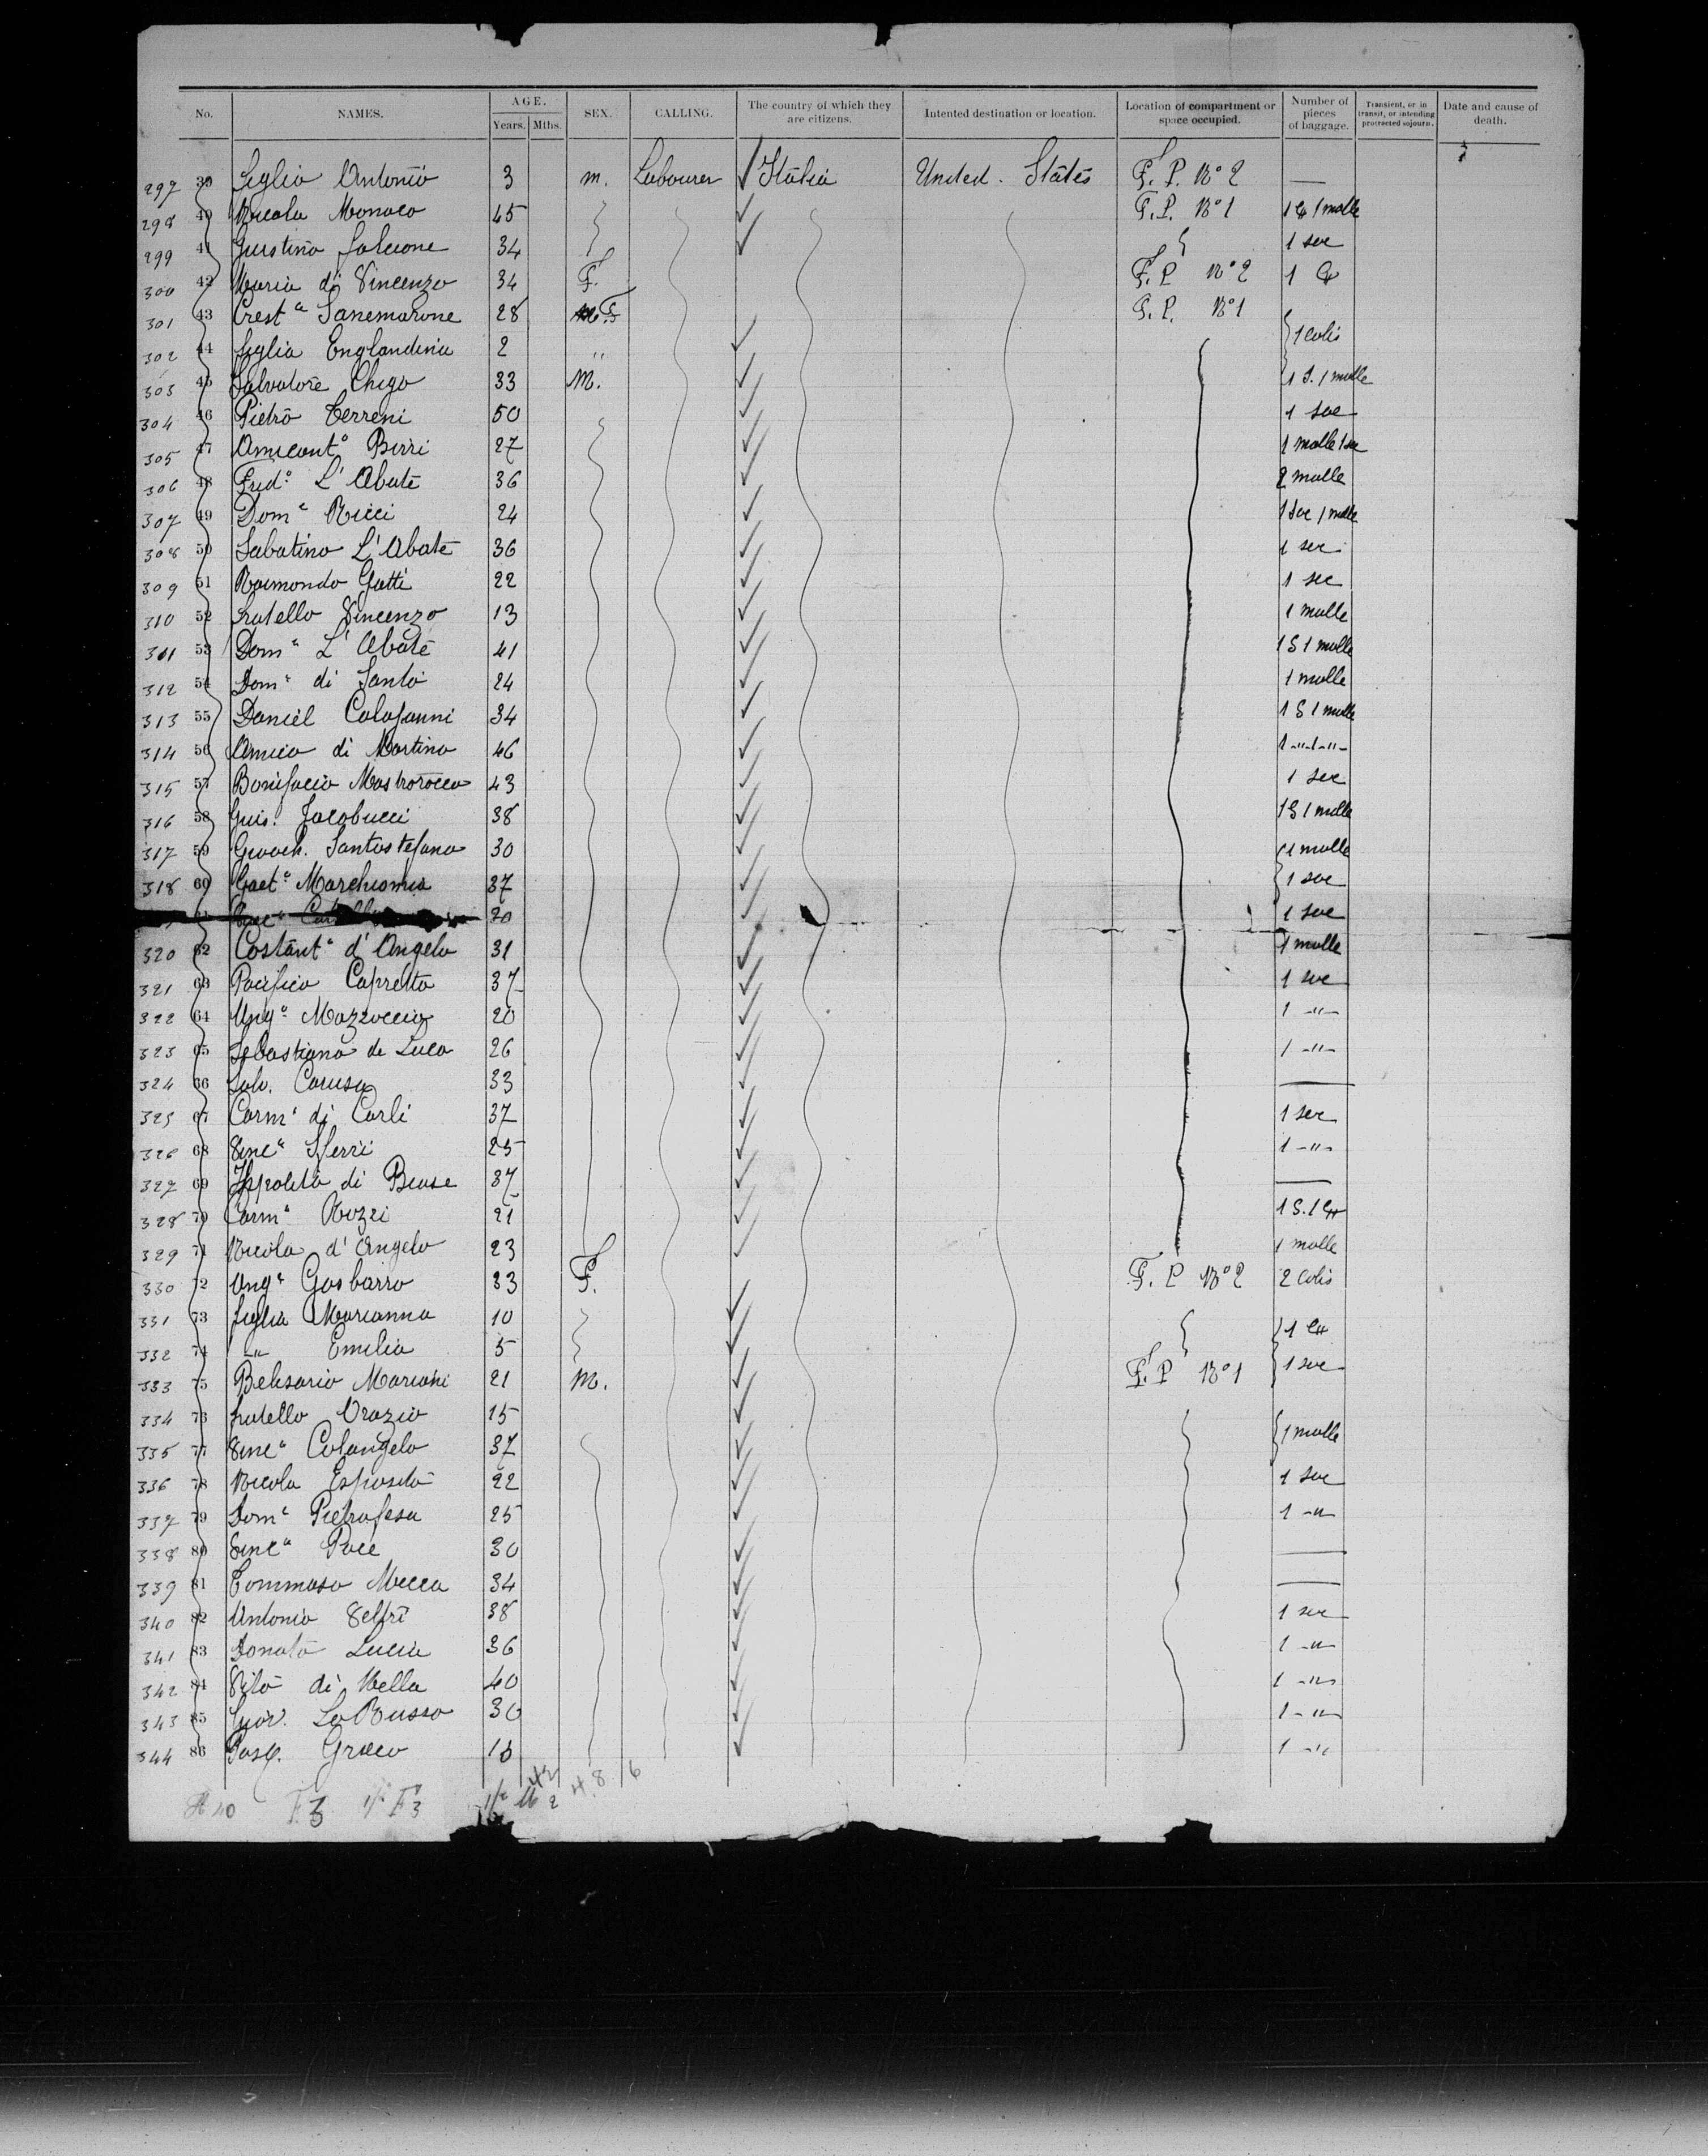 No. NAMES. AGE. Years. Mths. SEX. CALLING. The country of which they are citizens. Intented destination or location. Location of compartment or space occupied. Number of pieces of baggage. Transient, or in transit, or intending protracted sojourn. Date and cause of death.
297 39 figlio Antonio 3 m. Labourer Italia United States F. P. No 2 —
298 40 Nicola Monaco 45 F. P. No 1 1 malle
299 41 Giustino Falcione 34 1 sac
300 42 Maria di Vincenzo 34 F. F. P No 2 1
301 43 Crest.a Sanemarone 28 F F. P. No 1
302 44 figlia Englandina 2 " 1 Colis
303 45 Salvatore Chigo 33 M. 1 S. 1 malle
304 46 Pietro Terreni 50 1 sac
305 47 Amicant.o Birri 27 1 malle 1 sac
306 48 Fred.o L'Abate 36 2 malle
307 49 Dom.o Ricci 24 1 sac 1 malle
308 50 Sabatino L'Abate 36 1 sac
309 51 Raimondo Gatti 22 1 sac
310 52 fratello Vincenzo 13 1 malle
311 53 Dom.o L'Abate 41 1 S 1 malle
312 54 Dom.o di Santo 24 1 malle
313 55 Daniel Colafanni 34 1 S 1 malle
314 56 Amico di Martino 46 1 -"- 1 -"-
315 57 Bonifacio Mastrorocco 43 1 sac
316 58 Guis. Jacobucci 38 1 S 1 malle
317 59 Gioach. Santostefano 30 1 malle
318 60 Gaet.o 37 1 sac
20 1 sac
320 62 Costant.o d'Angelo 31 1 malle
321 63 Pacifico Capretta 37 1 sac
322 64 Ang.o Mazzoccia 20 1 -"-
323 65 Sebastiano de Luca 26 1 -"-
324 66 Salv. Caruso 33 —
325 67 Carm.o di Carli 37 1 sac
326 68 Vinc.o Sferri 25 1 -"-
327 69 Ippolito di Biase 37 —
328 70 Carm.o Rozzi 21 1 S. 1
329 71 Nicola d'Angelo 23 1 malle
330 72 Ang.a Gasbarro 33 F. F. P No 2 2 Colis
331 73 figlia Marianna 10 1
332 74 -"- Emilia 5 1 sac
333 75 Belisario Mariani 21 M. F. P No 1
334 76 fratello Orazio 15 1 malle
335 77 Vinc.o Colangelo 37
336 78 Nicola Esposito 22 1 sac
337 79 Dom.o Pietrafesa 25 1 -"-
338 80 Vinc.o Pace 30 —
339 81 Tommaso Mecca 34 —
340 82 Antonio 38 1 sac
341 83 Donato Lucia 36 1 -"-
342 84 Vito di Mella 40 1 -"-
343 85 Giov. Lo Russo 30 1 -"-
344 86 Pasq. Greco 1 -"-